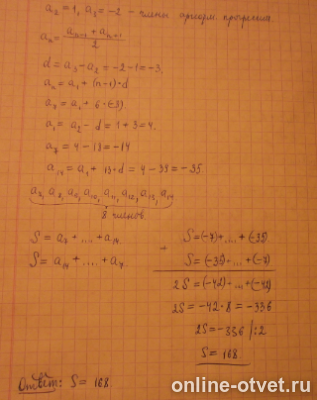 a₂ = 1, a₃ = -2 - члены арифм. прогрессии
aₙ = (aₙ₋₁ + aₙ₊₁)/2
d = a₃ - a₂ = -2 - 1 = -3.
aₙ = a₁ + (n-1)·d
a₇ = a₁ + 6·(-3).
a₁ = a₂ - d = 1 + 3 = 4.
a₇ = 4 - 18 = -14
a₁₄ = a₁ + 13·d = 4 - 39 = -35
a₇, a₈, a₉, a₁₀, a₁₁, a₁₂, a₁₃, a₁₄
8 членов
S = a₇ + .... + a₁₄
S = a₁₄ + .... + a₇
+
S = (-7) + ... + (-35)
S = (-35) ... + (-7)
2S = (-42) + ... + (-42)
2S = -42·8 = -336
2S = -336 /:2
S = 168
Ответ: S = 168.
online-otvet.ru